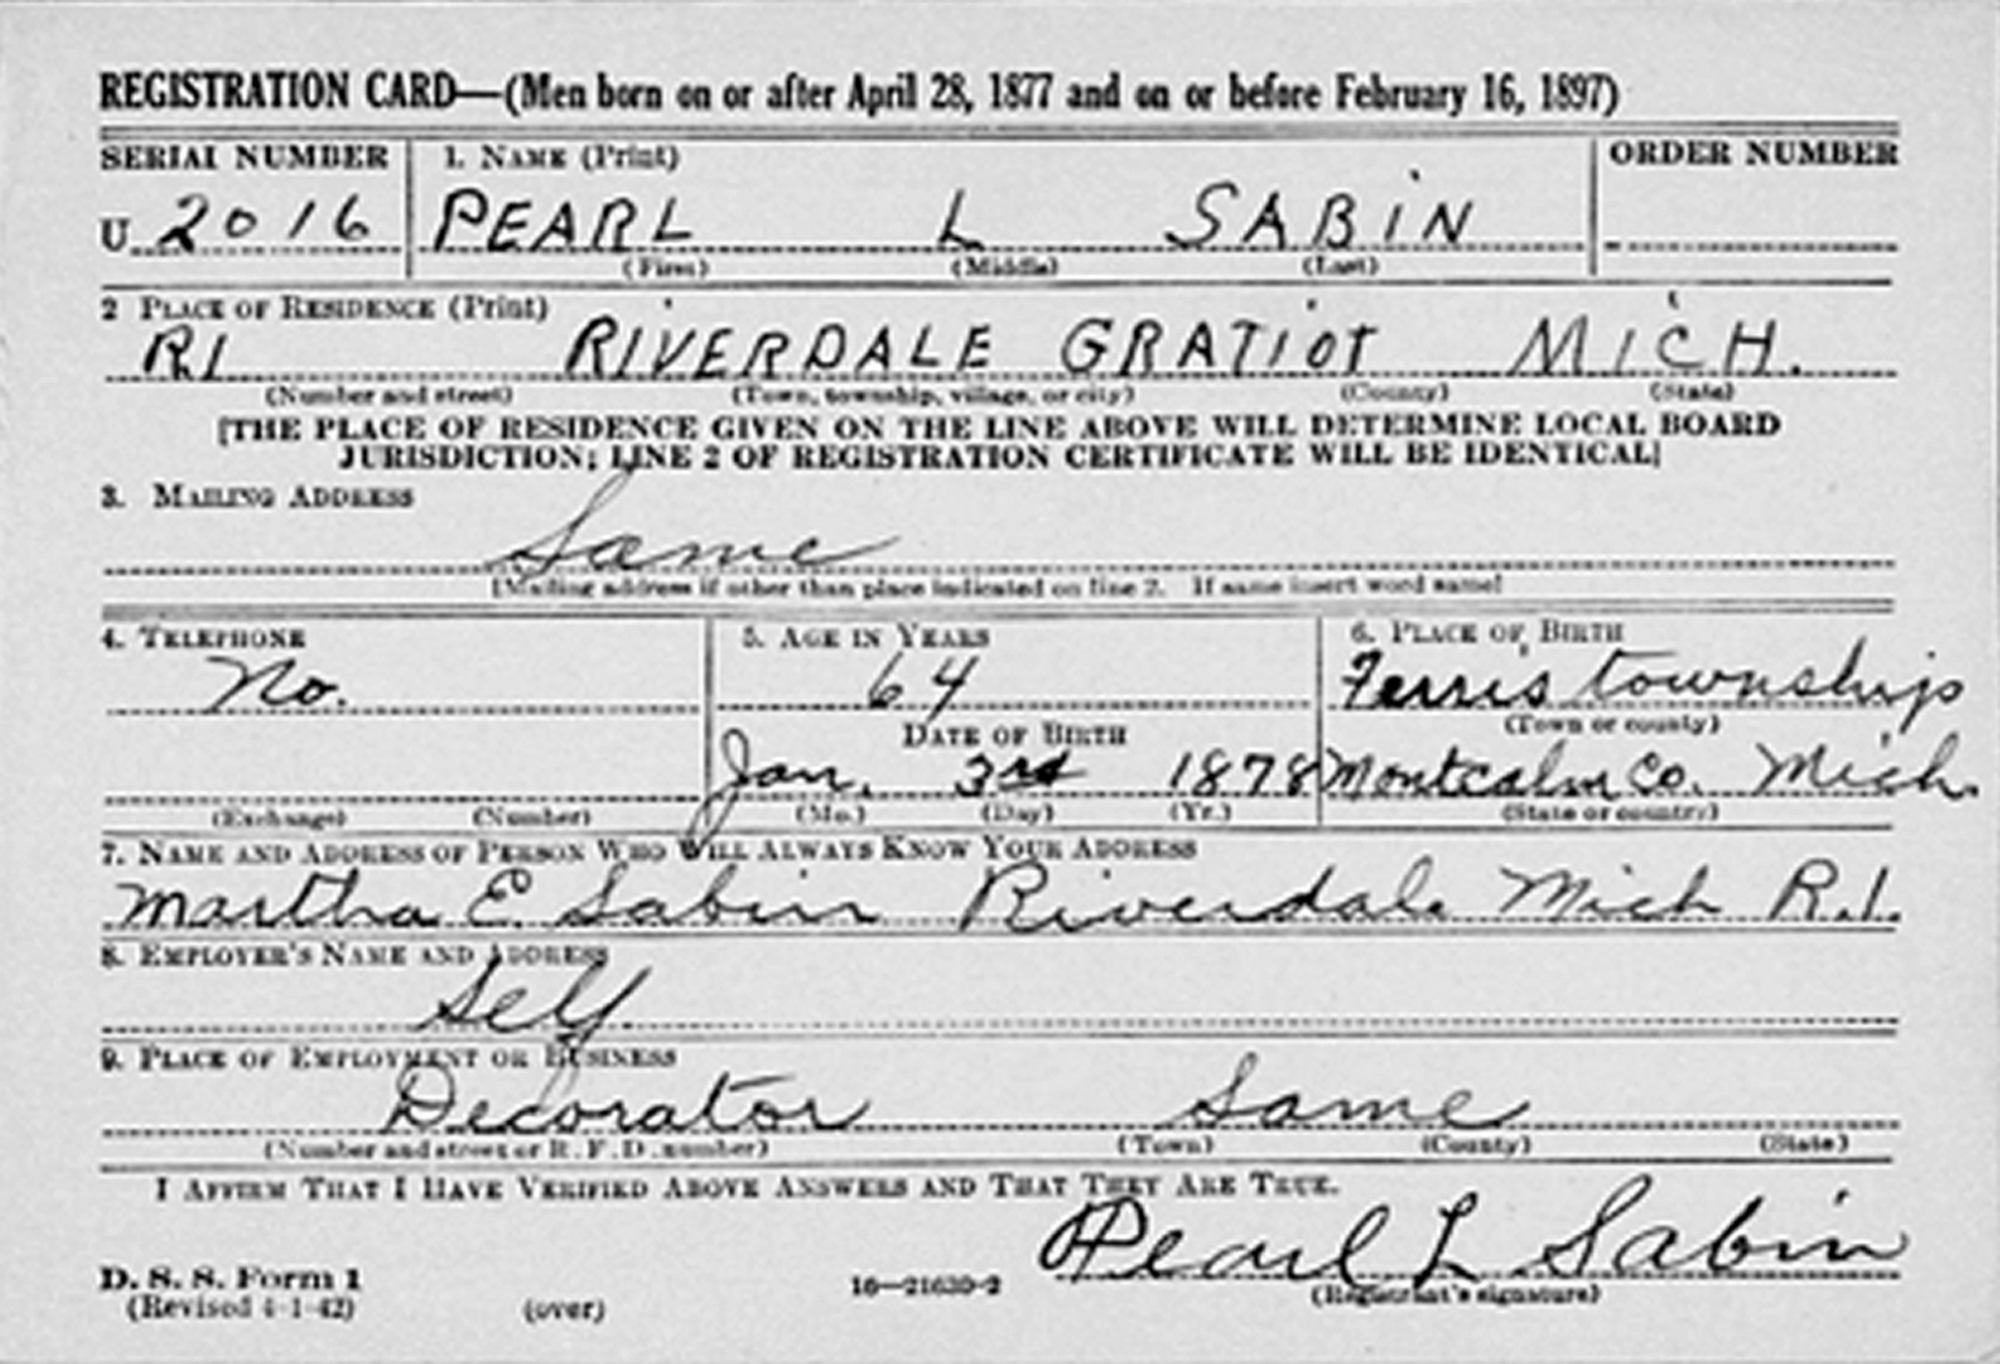 REGISTRATION CARD—(Men born on or after April 28, 1877 and on or before February 16, 1897)
SERIAL NUMBER 1. NAME (Print) ORDER NUMBER
U 2016 PEARL L SABIN
(First) (Middle) (Last)
2 PLACE OF RESIDENCE (Print)
R1 RIVERDALE GRATIOT MICH.
(Number and street) (Town, township, village, or city) (County) (State)
[THE PLACE OF RESIDENCE GIVEN ON THE LINE ABOVE WILL DETERMINE LOCAL BOARD
JURISDICTION; LINE 2 OF REGISTRATION CERTIFICATE WILL BE IDENTICAL]
3. MAILING ADDRESS
Same
[Mailing address if other than place indicated on line 2. If same insert word same]
4. TELEPHONE 5. AGE IN YEARS 6. PLACE OF BIRTH
No. 64 Ferris township
DATE OF BIRTH (Town or county)
Jan. 3rd 1878 Montcalm Co. Mich.
(Exchange) (Number) (Mo.) (Day) (Yr.) (State or country)
7. NAME AND ADDRESS OF PERSON WHO WILL ALWAYS KNOW YOUR ADDRESS
Martha E. Sabin Riverdale Mich R.1.
8. EMPLOYER'S NAME AND ADDRESS
Self
9. PLACE OF EMPLOYMENT OR BUSINESS
Decorator Same
(Number and street or R. F. D. number) (Town) (County) (State)
I AFFIRM THAT I HAVE VERIFIED ABOVE ANSWERS AND THAT THEY ARE TRUE.
Pearl L Sabin
D. S. S. Form 1 16—21630-2 (Registrant's signature)
(Revised 4-1-42) (over)